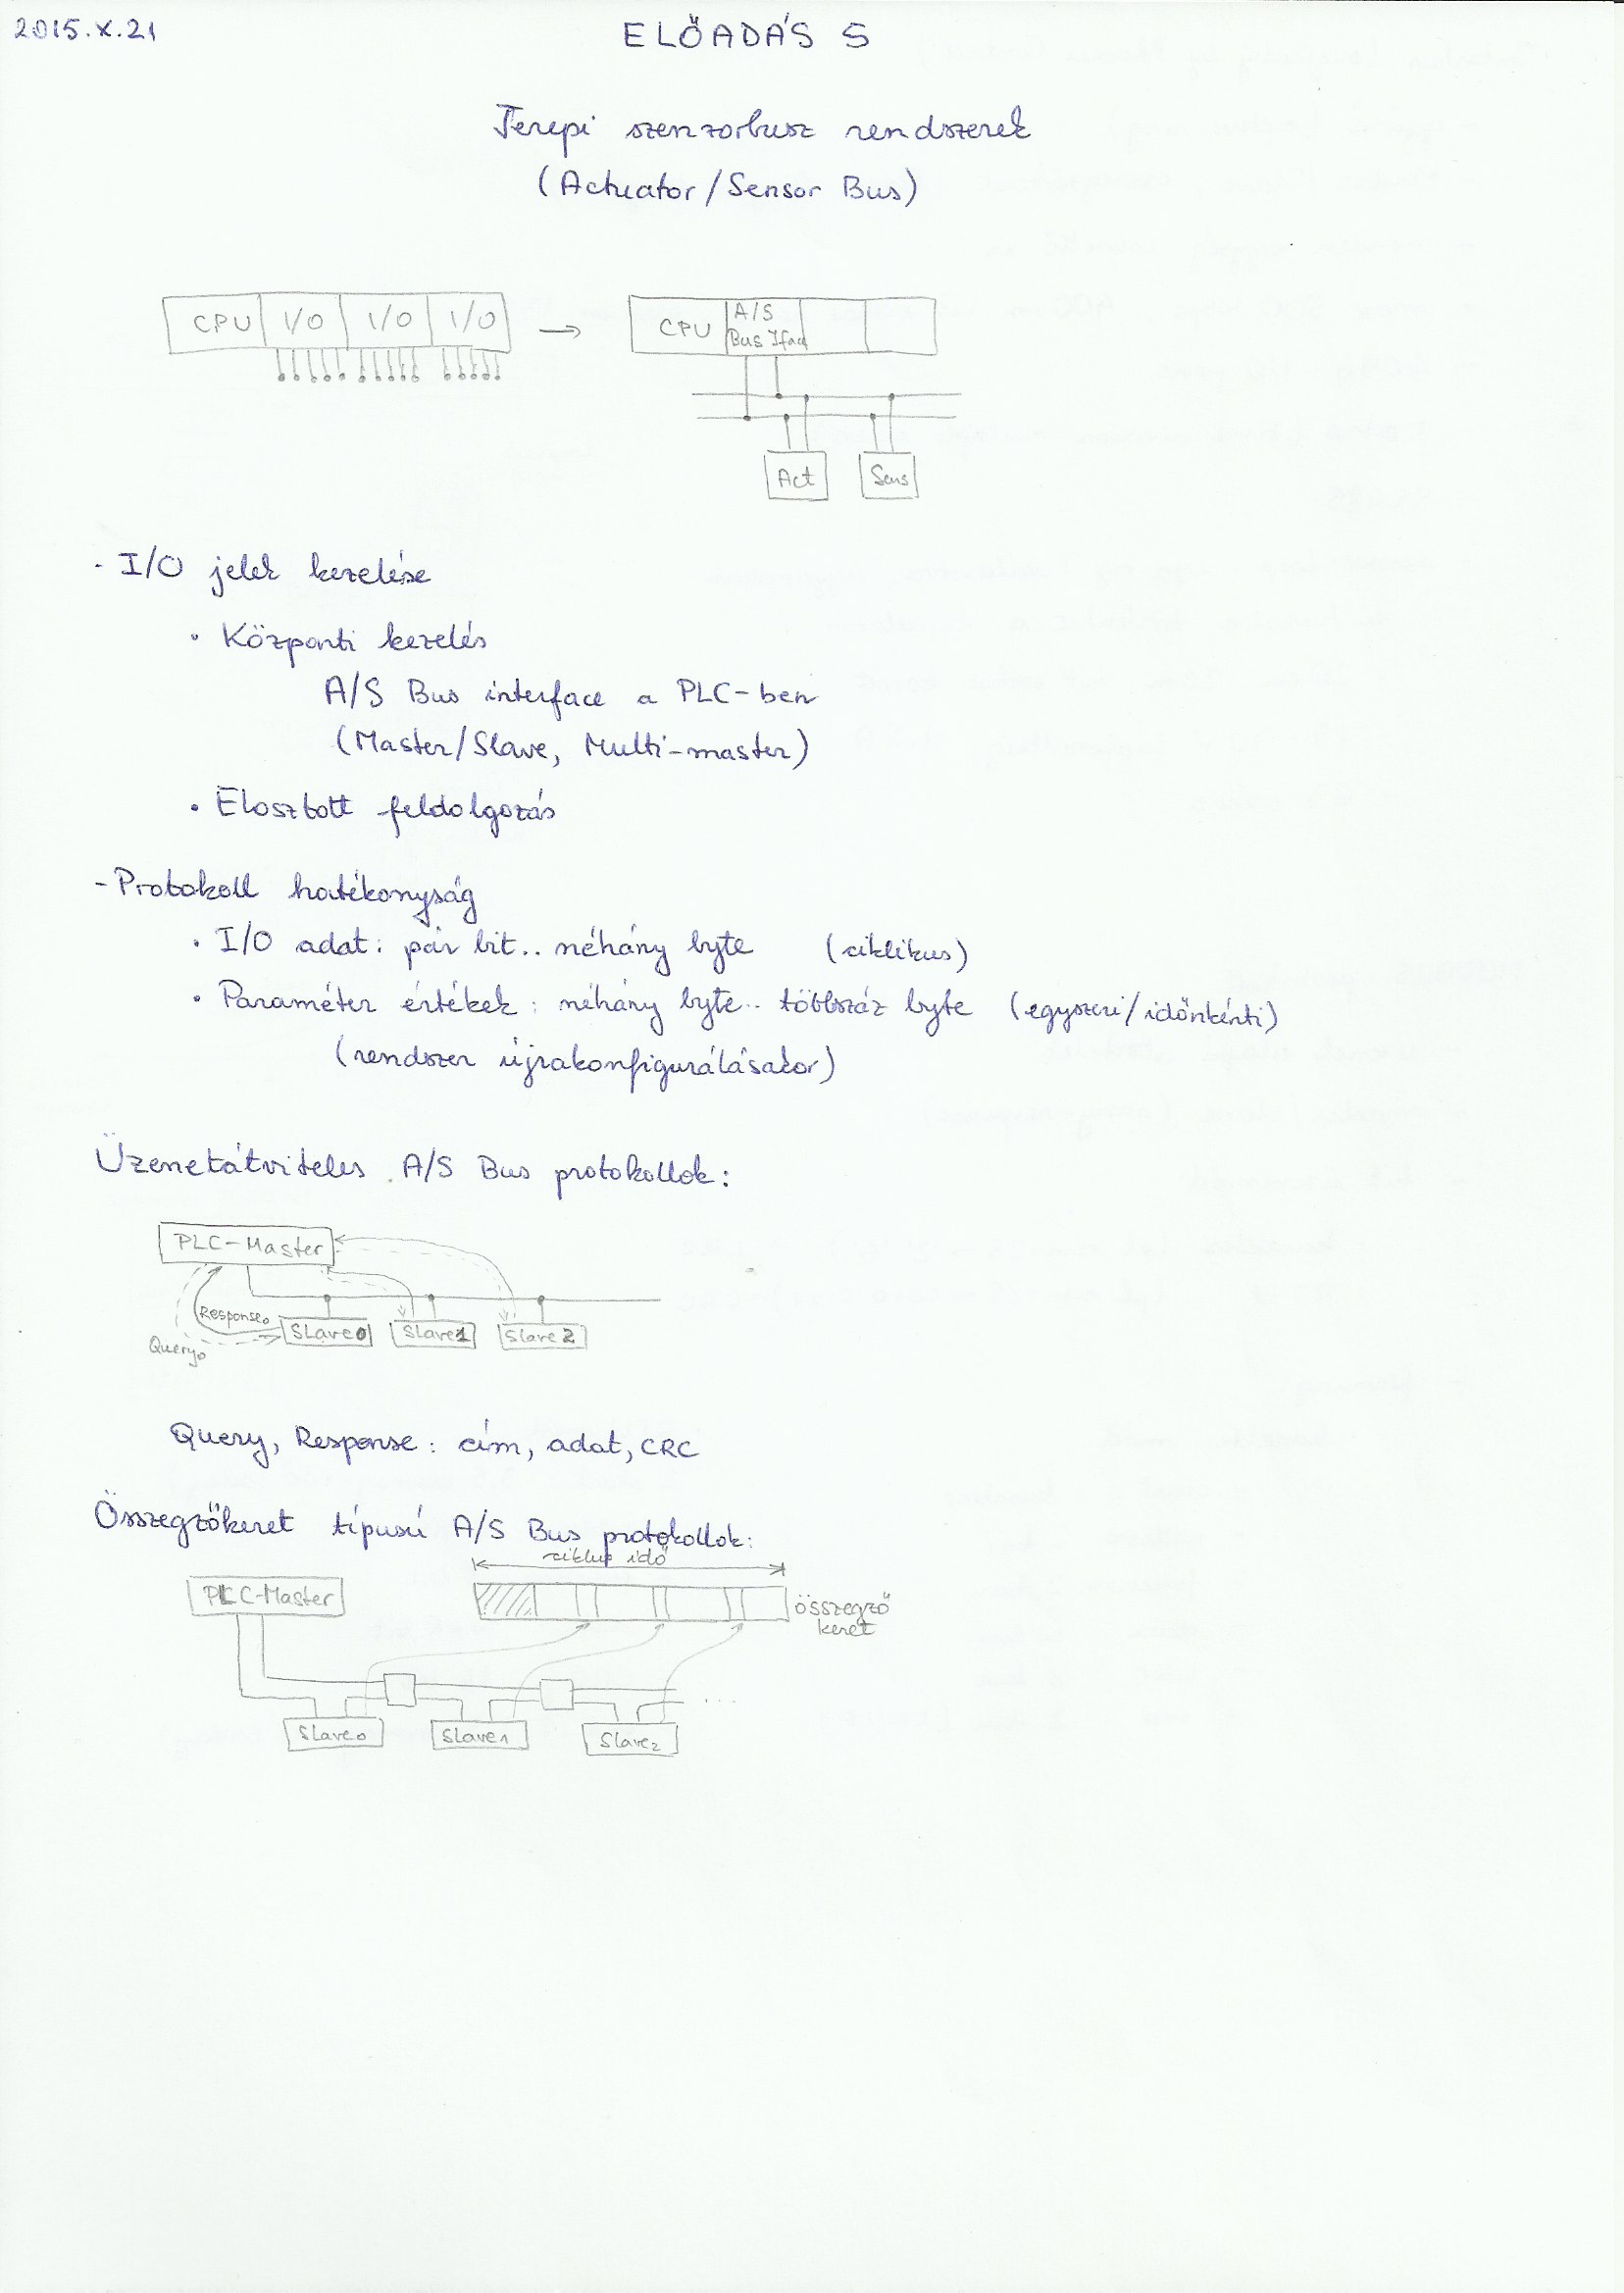 2015.X.21
ELŐADÁS 5
Terepi szenzorbusz rendszerek
(Actuator/Sensor Bus)
CPU I/O I/O I/O → CPU A/S
Bus Ifac
Act Sens
- I/O jelek kezelése
• Központi kezelés
A/S Bus interface a PLC-ben
(Master/Slave, Multi-master)
• Elosztott feldolgozás
- Protokoll hatékonyság
• I/O adat: pár bit.. néhány byte (ciklikus)
• Paraméter értékek: néhány byte.. többszáz byte (egyszeri/időnkénti)
(rendszer újrakonfigurálásakor)
Üzenetátviteles A/S Bus protokollok:
PLC-Master
Response0
Slave0 Slave1 Slave2
Query0
Query, Response: cím, adat, CRC
Összegzőkeret típusú A/S Bus protokollok:
ciklus idő
PLC-Master
összegző
keret
...
Slave0 Slave1 Slave2